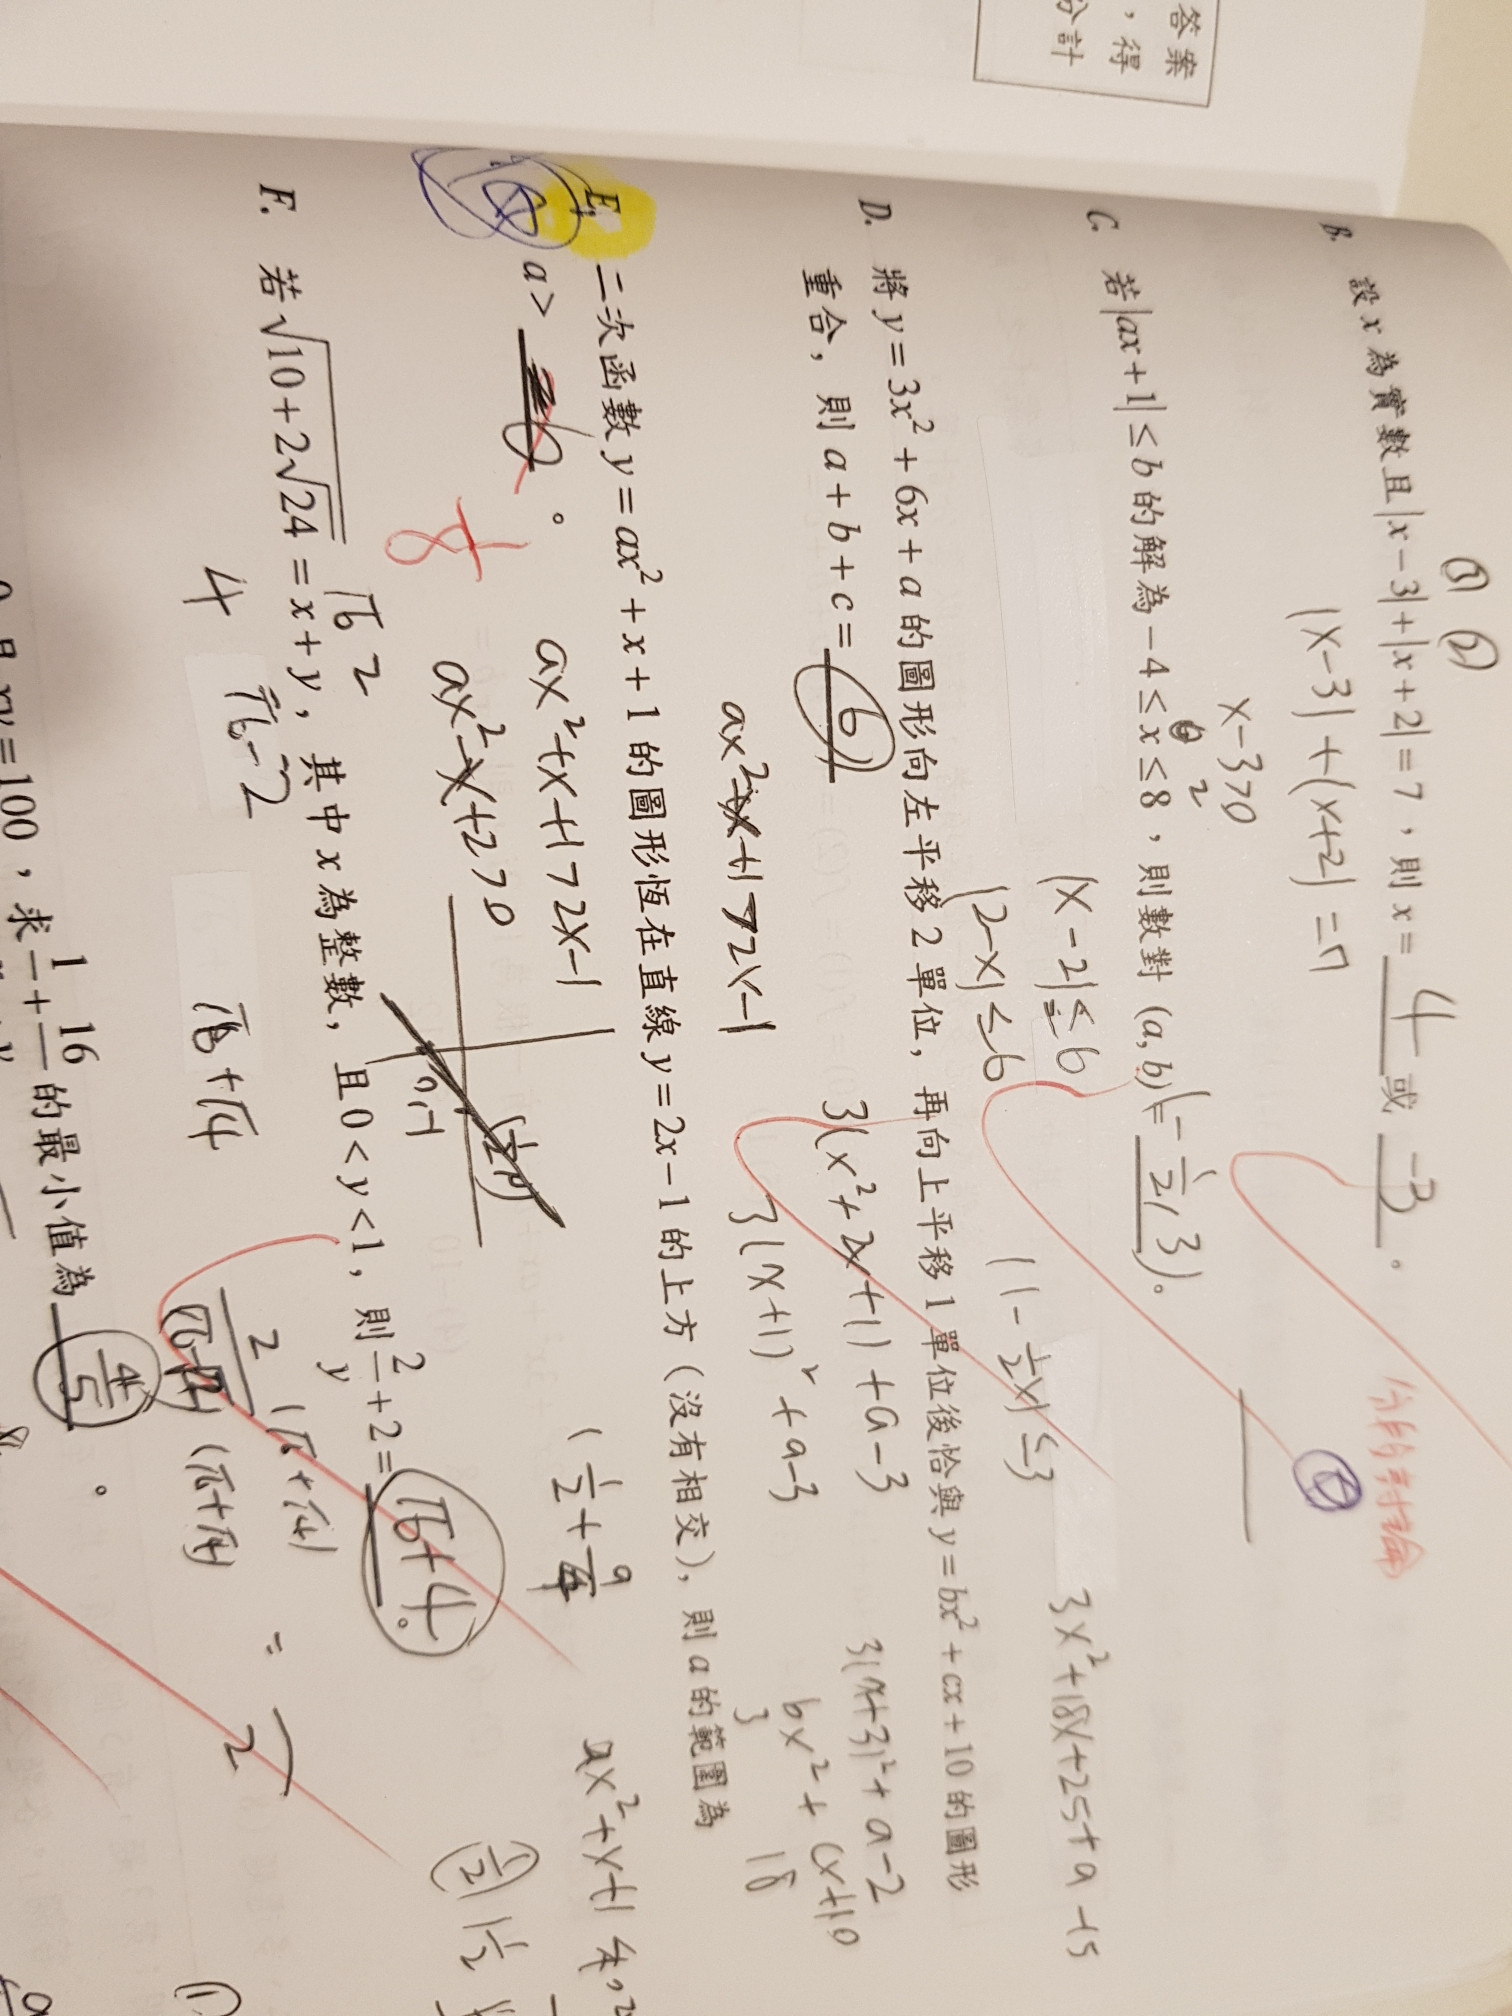 答案
，得
分計
(3) (2)
B. 設 x 為實數且|x－3|＋|x＋2|＝7，則 x＝ 4 或 -3 。
分段討論
|x-3|+|x+2|=7
x-3>0
C. 若|ax＋1|≤b 的解為－4≤x≤8，則數對 (a, b)＝(-1/2, 3)。
2
|x-2|≤6
|2-x|≤6
|1-1/2x|≤3
3x²+18x+25+a-15
D. 將 y＝3x²＋6x＋a 的圖形向左平移 2 單位，再向上平移 1 單位後恰與 y＝bx²＋cx＋10 的圖形
重合，則 a＋b＋c＝ 6
3(x²+2x+1)+a-3
3(x+3)²+a-2
3(x+1)²+a-3
bx²+cx+10
3
18
ax²+x+1>2x-1
E. 二次函數 y＝ax²＋x＋1 的圖形恆在直線 y＝2x－1 的上方（沒有相交），則 a 的範圍為
a＞ 。
1/8
ax²+x+1>2x-1
ax²-x+2>0
0,-1
ax²+x+1
F. 若√(10＋2√24)＝x＋y，其中 x 為整數，且 0＜y＜1，則 2/y＋2＝ √6+4 。
√6 2
4
√6-2
√6+√4
2
(√6+√4)
(√6+√4)
=
2
xy＝100，求 1/x＋16/y 的最小值為 4/5 。